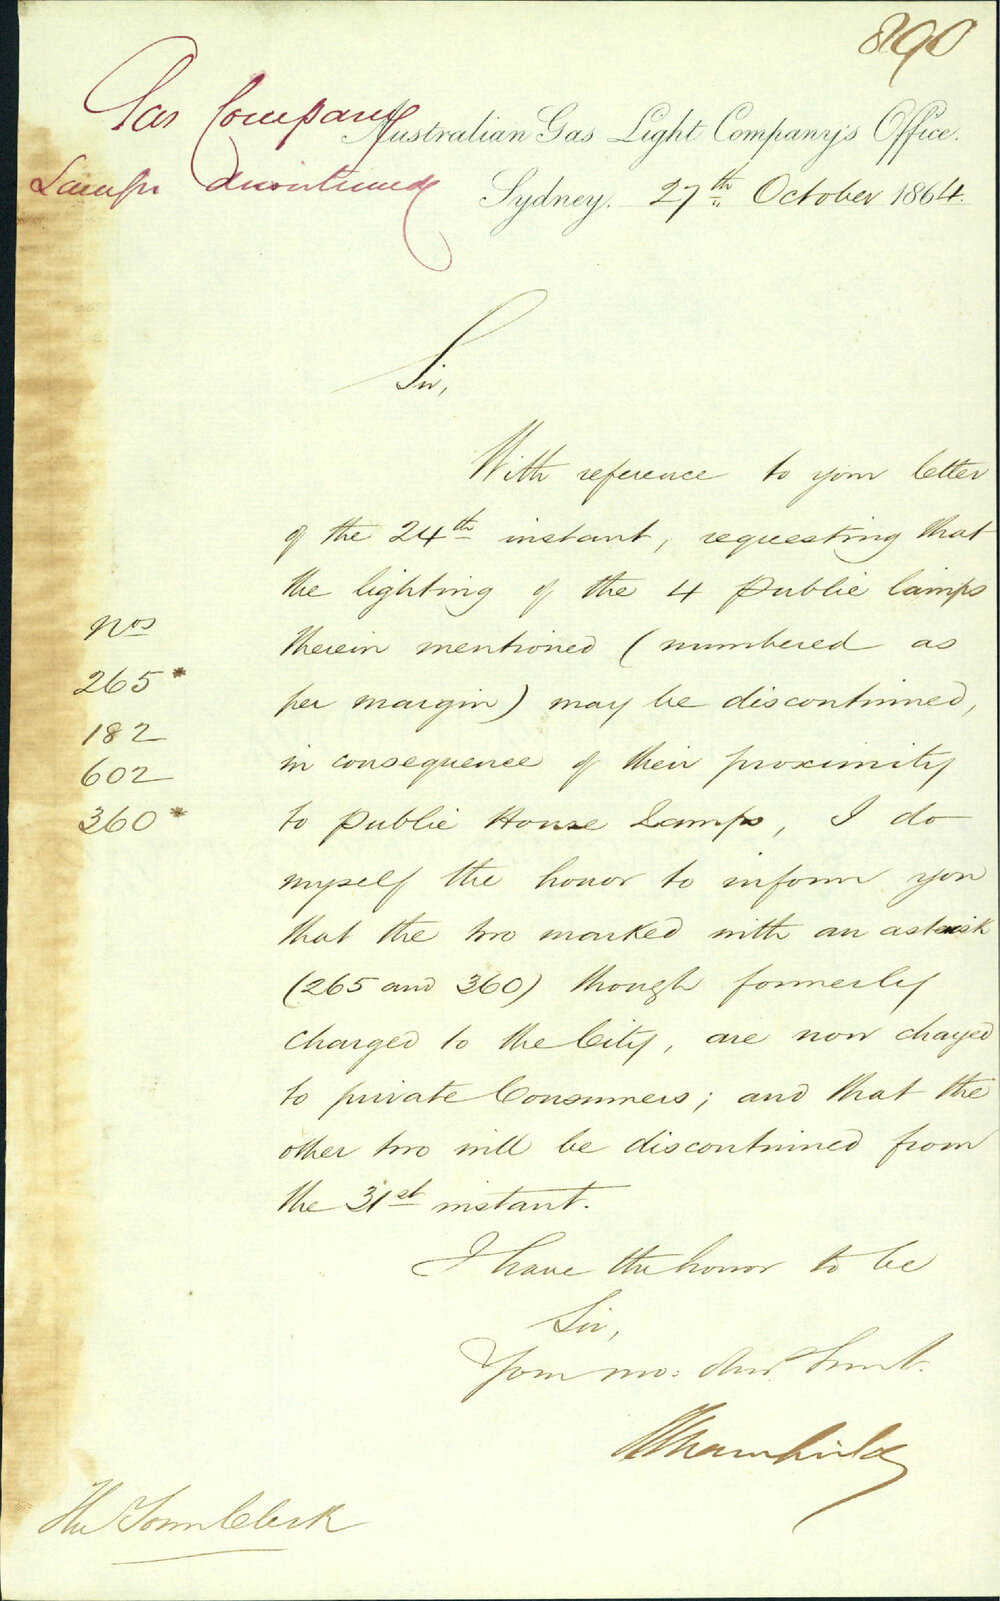 890
Gas Company
Lamps discontinued
Australian Gas Light Company's Office.
Sydney. 27th October 1864.
Sir,
With reference to your letter
of the 24th instant, requesting that
the lighting of the 4 public lamps
therein mentioned (numbered as
per margin) may be discontinued,
in consequence of their proximity
to public House Lamps, I do
myself the honor to inform you
that the two marked with an asterisk
(265 and 360) though formerly
charged to the City, are now charged
to private Consumers; and that the
other two will be discontinued from
the 31st instant.
Nos
265*
182
602
360*
I have the honor to be
Sir,
Your mo: Obt. Servt.
The Town Clerk